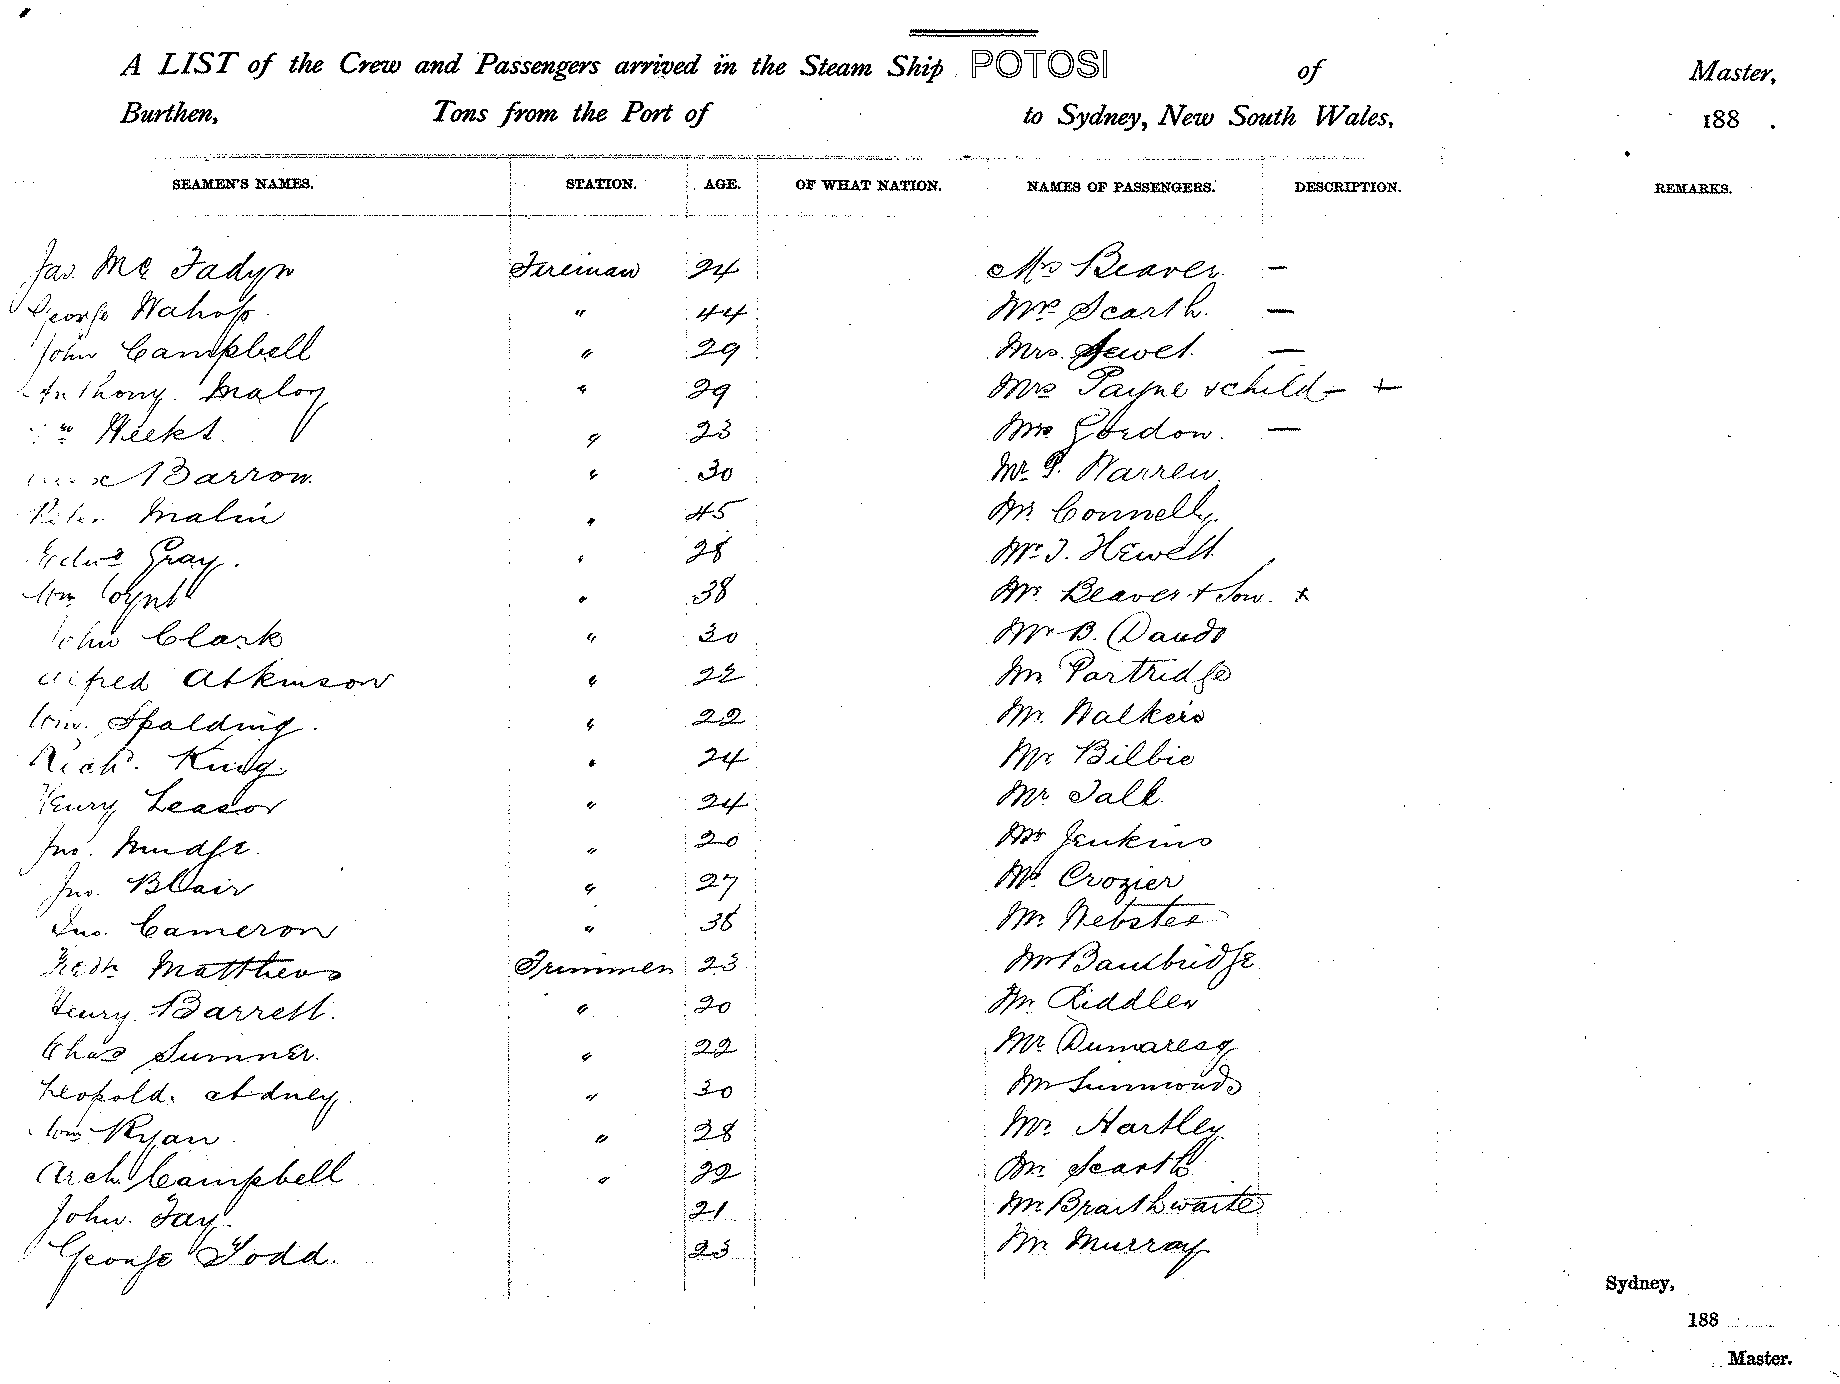 A LIST of the Crew and Passengers arrived in the Steam Ship POTOSI of Master,
Burthen, Tons from the Port of to Sydney, New South Wales, 188 .
SEAMEN'S NAMES. STATION. AGE. OF WHAT NATION. NAMES OF PASSENGERS. DESCRIPTION. REMARKS.
Jas. Mc Fadyn Fireman 24 Mrs Beaver —
George Wahop " 44 Mrs Scarth. —
John Campbell " 29 Mrs. Jewel. —
Anthony Maloy " 29 Mrs Payne + child — +
Weeks " 23 Mrs Gordon. —
Barrow. " 30 Mr. P. Warren
Peter Malin " 45 Mr. Connelly.
Edwd Gray. " 28 Mr. J. Hewett
Wm " 38 Mr. Beaver + Son. +
John Clark " 30 Mr B. Daudo
Alfred Atkinson " 22 Mr Partridge
Wm. Spalding. " 22 Mr. Walkers
Richd. King. " 24 Mr Bilbie
Henry Leasor " 24 Mr Tall.
Jno. Mudge. " 20 Mr Jenkins
Jno. Blair " 27 Mr Crozier
Jno. Cameron " 38 Mr. Webster
Fredk Matthews Trimmer 23 Mr Bambridge
Henry Barrett. " 20 Mr. Riddler
Chas Sumner. " 22 Mr. Dumaresq
Leopold. Adney. " 30 Mr Simmonds
Wm Ryan " 28 Mr. Hartley
Arch. Campbell " 22 Mr. Scarth
John. Fay. 21 Mr. Braithwaite
George Todd. 23 Mr. Murray
Sydney,
188
Master.